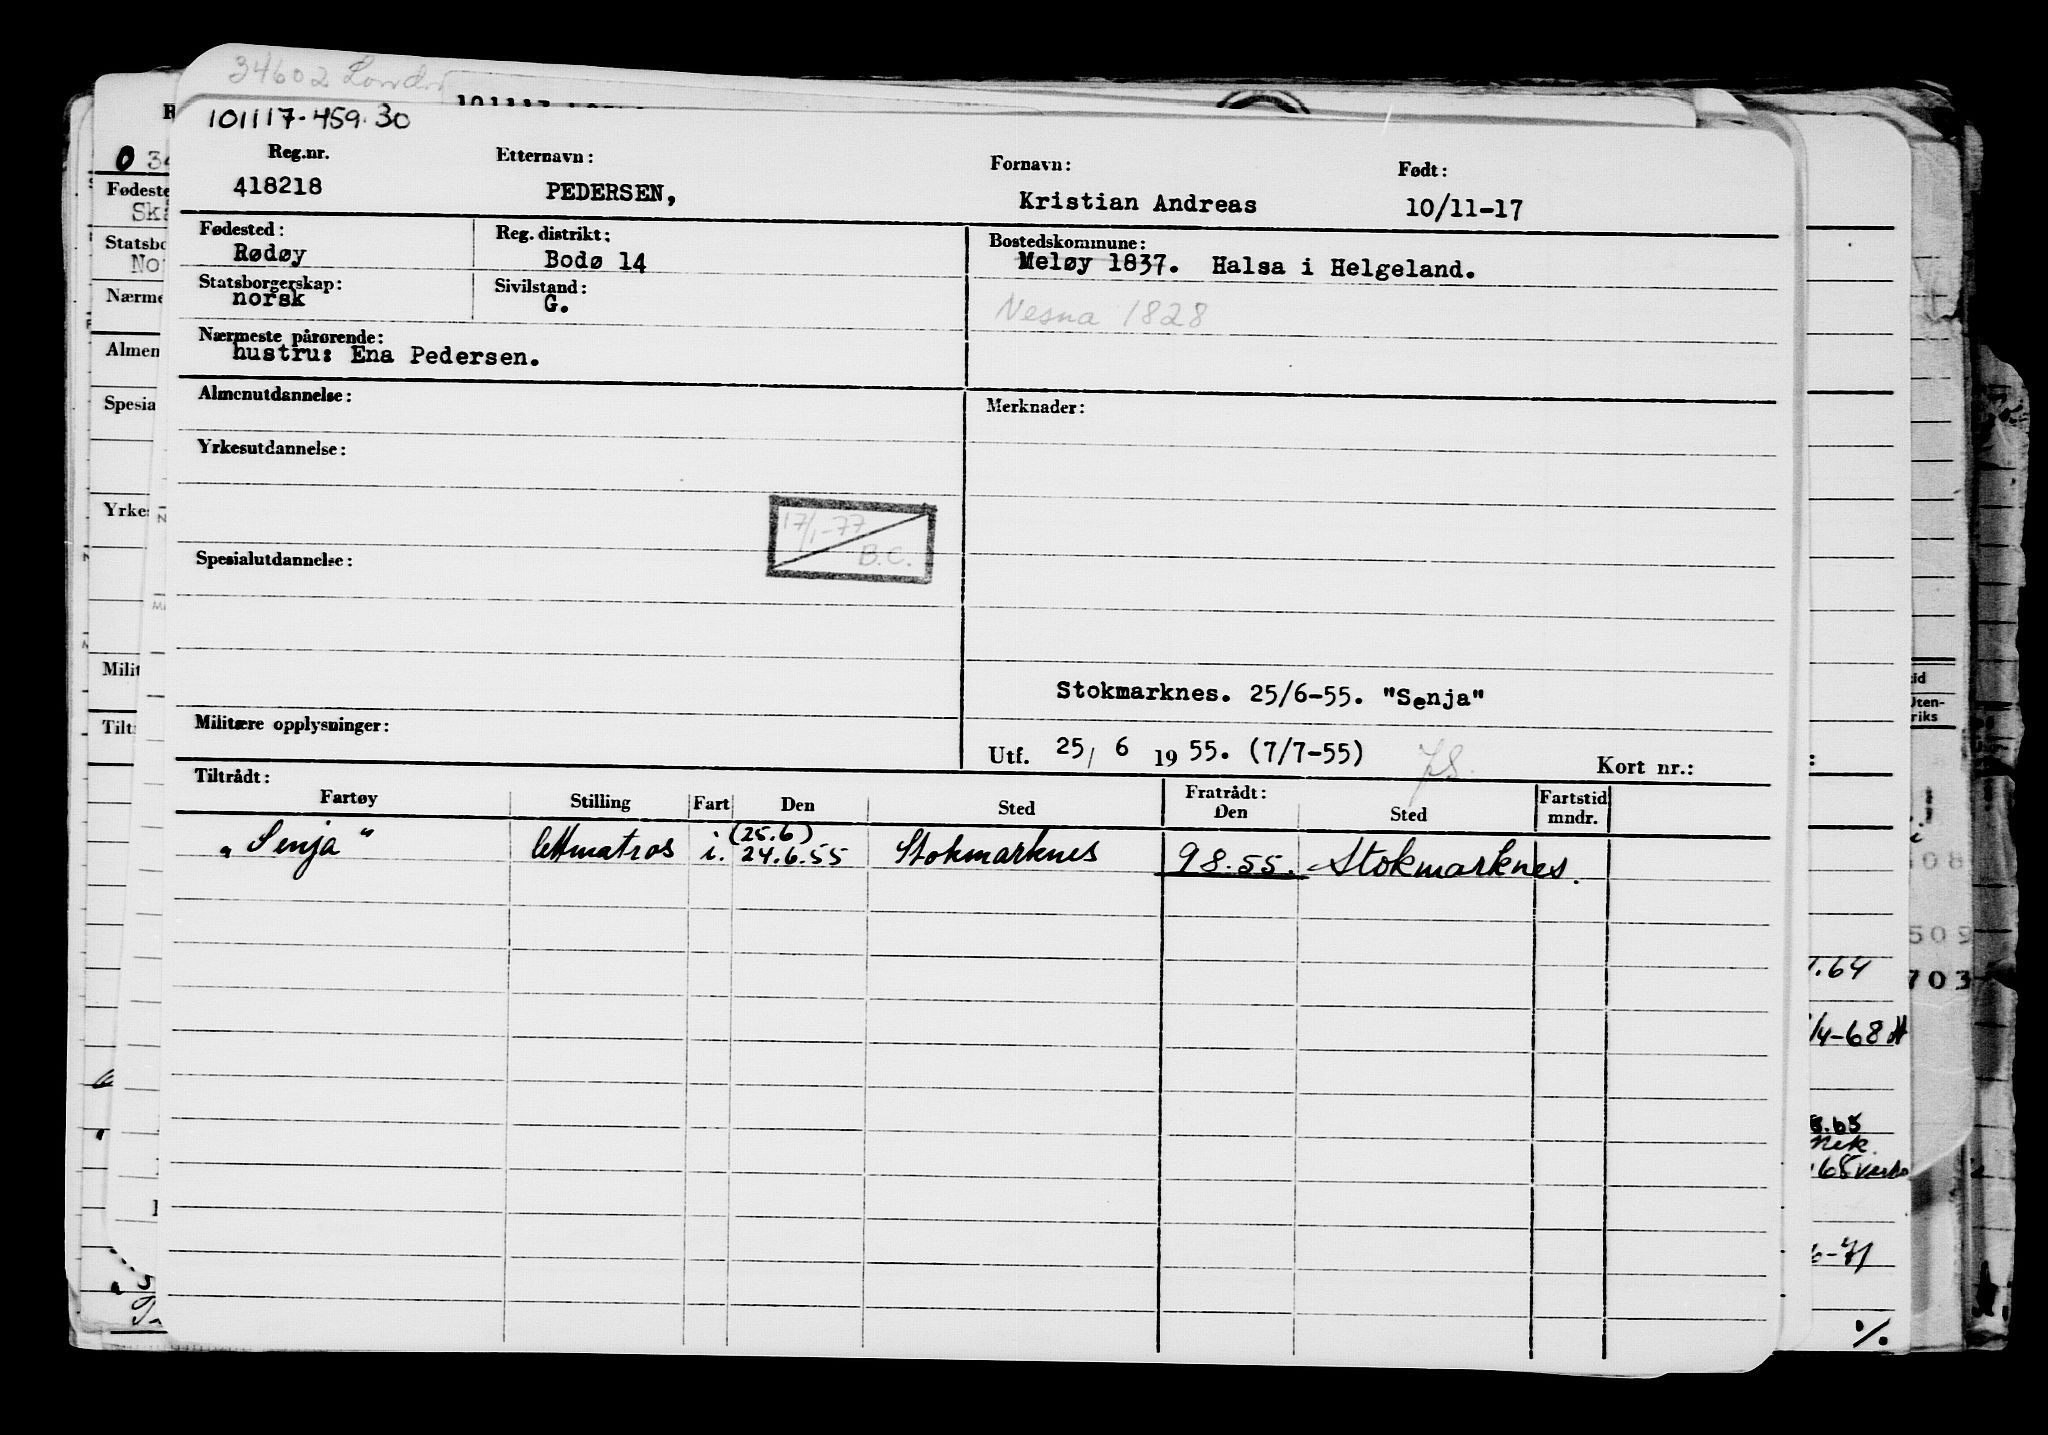 34602
101117-459.30
Reg.nr. Etternavn: Fornavn: Født:
418218 PEDERSEN, Kristian Andreas 10/11-17
Fødested: Reg. distrikt: Bostedskommune:
Rødøy Bodø 14 Meløy 1837. Halsa i Helgeland.
Statsborgerskap: Sivilstand:
norsk G. Nesna 1828
Nærmeste pårørende:
hustru: Ena Pedersen.
Almenutdannelse: Merknader:
Yrkesutdannelse:
17/1-77
B.C.
Spesialutdannelse:
Stokmarknes. 25/6-55. "Senja"
Militære opplysninger:
Utf. 25/ 6 19 55. (7/7-55) Kort nr.:
Tiltrådt: Fratrådt:
Fartøy Stilling Fart Den Sted Den Sted Fartstid mndr.
(25.6)
„Senja" lettmatros i. 24.6.55 Stokmarknes 9 8.55. Stokmarknes.